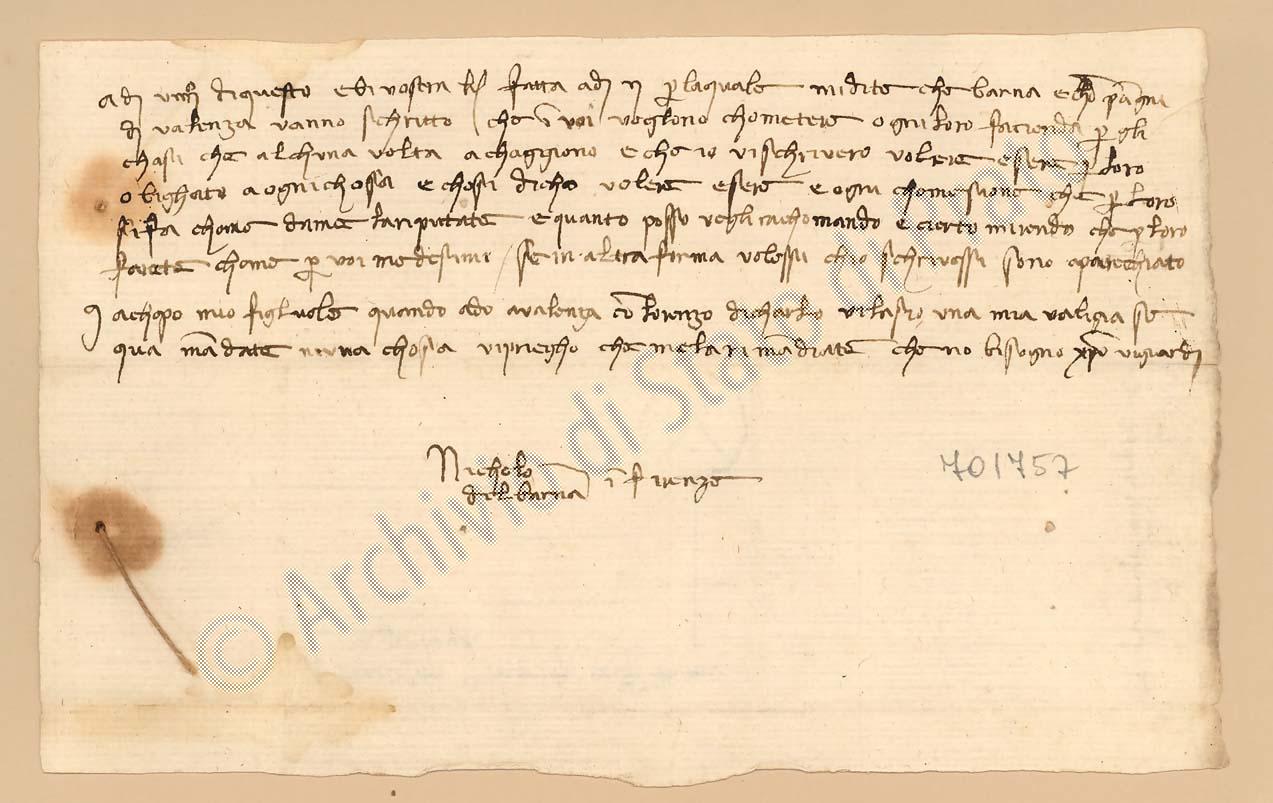 adi diquesto ebi vostra fatta adi ij p laquale midite che barna e
di valenza vanno schritto / che i voi voglono chometere ogni loro facienda p gli
chasi che alchuna volta achaggiono e che io vischrivero volere essere p loro
obighato a ogni chossa e chossi dicho volere esere e ogni chomesione che p loro
si fa chome dame lariputate e quanto posso vegli rachomando e cierto mirendo che p loro
farete chome p voi medesimi / se in altra forma volessi chio schrivessi sono aparechiato
achopo mio figluole quando ado avalenza co lorenzo dicharlo vilascio una mia valigia se
qua madate niuna chossa vipriegho che melarimadiate che no bisogno xpo viguardi
Nicholo
del barna i firenze
701757
© Archivio di Stato di Prato